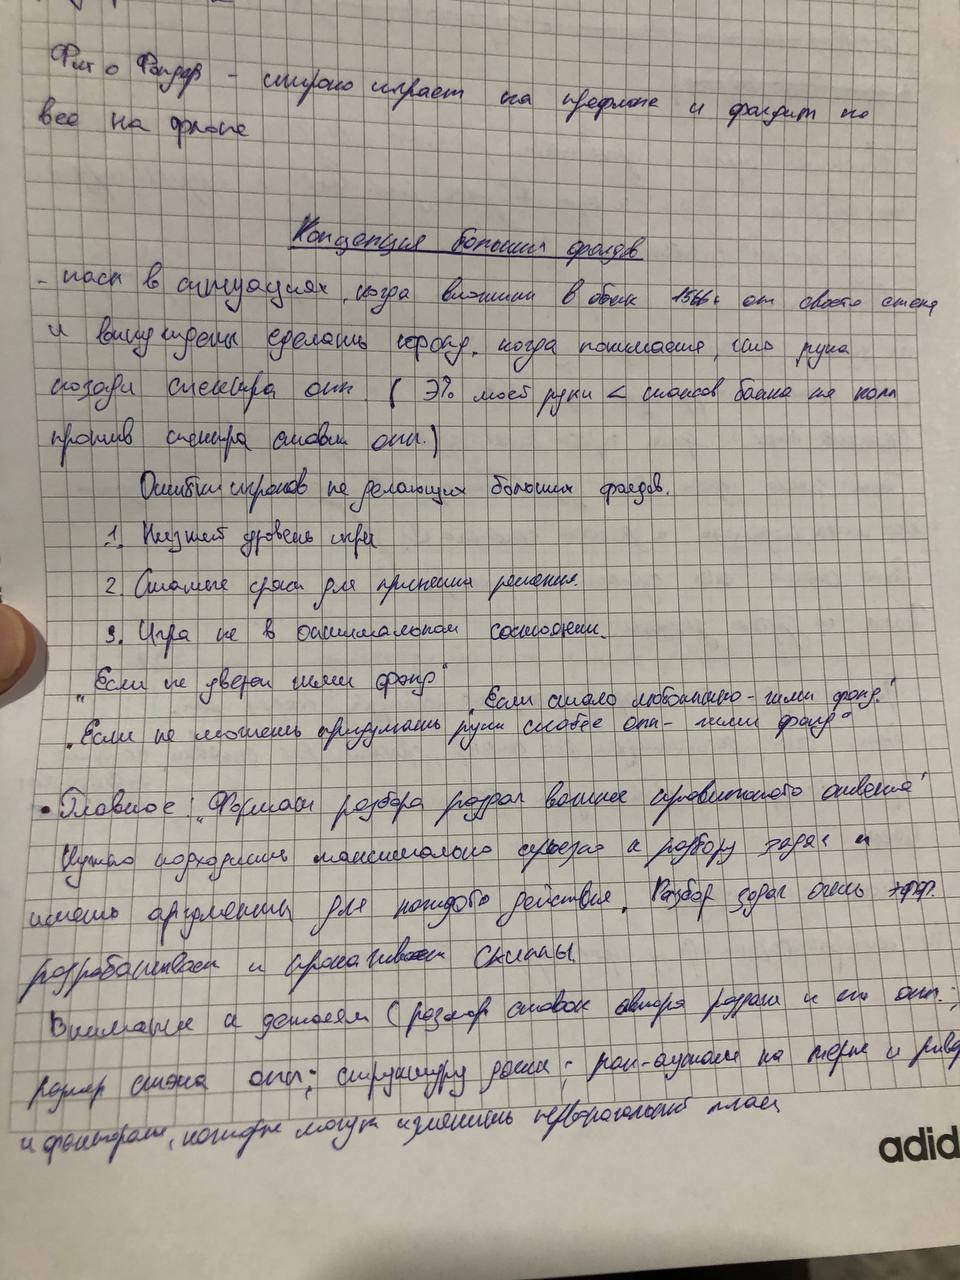 Фит о Фолдер - широко играет на префлопе и фолдит по
все на флопе
Концепция больших фолдов
- пасы в ситуациях, когда вложили в банк 15ББ+ от своего стека
и вынуждены сделать фолд, когда понимаете, что рука
позади спектра опп. ( Э% моей руки < шансов банка на колл
против спектра ставки опп.)
Ошибки игроков не делающих больших фолдов.
1. Низкий уровень игры
2. Сжатые сроки для принятия решения.
3. Игра не в оптимальном состоянии.
„Если не уверен жми фолд"
„Если стало любопытно - жми фолд"
„Если не можешь придумать руки слабее опп - жми фолд"
• Главное: „Формат разбора раздач важнее правильного ответа"
Нужно подходить максимально серьезно к разбору задач и
иметь аргументы для каждого действия. Разбор задач очень эфф.
разрабатывает и прокачивает скиллы
Внимание к деталям (размер ставок автора раздачи и его опп.;
размер стэка опп.; структуру доски; ран-ауты на терне и ривер
и факторам, которые могут изменить первоначальный план
adid